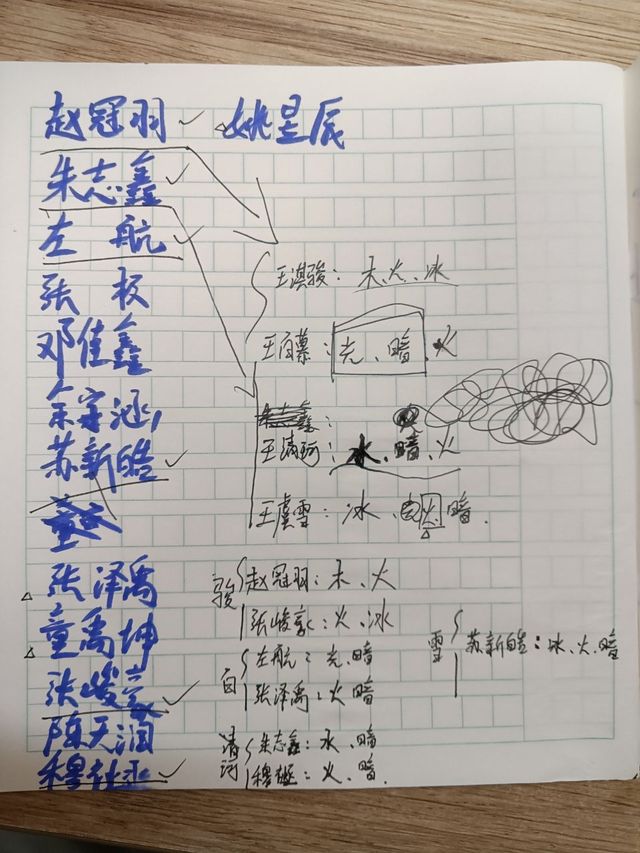 赵冠羽 姚星辰
朱志鑫
左航
张极
邓佳鑫
余宇涵
苏新皓
张泽禹
童禹坤
张峻豪
陈天润
穆祉丞
王淇骏：木、火、冰
王百慕：光、暗、火
王清河：水、暗、火
王虞雪：冰、火、暗
骏
赵冠羽：木、火
张峻豪：火、冰
白
左航：光、暗
张泽禹：火、暗
清河
朱志鑫：水、暗
穆祉丞：火、暗
雪
苏新皓：冰、火、暗